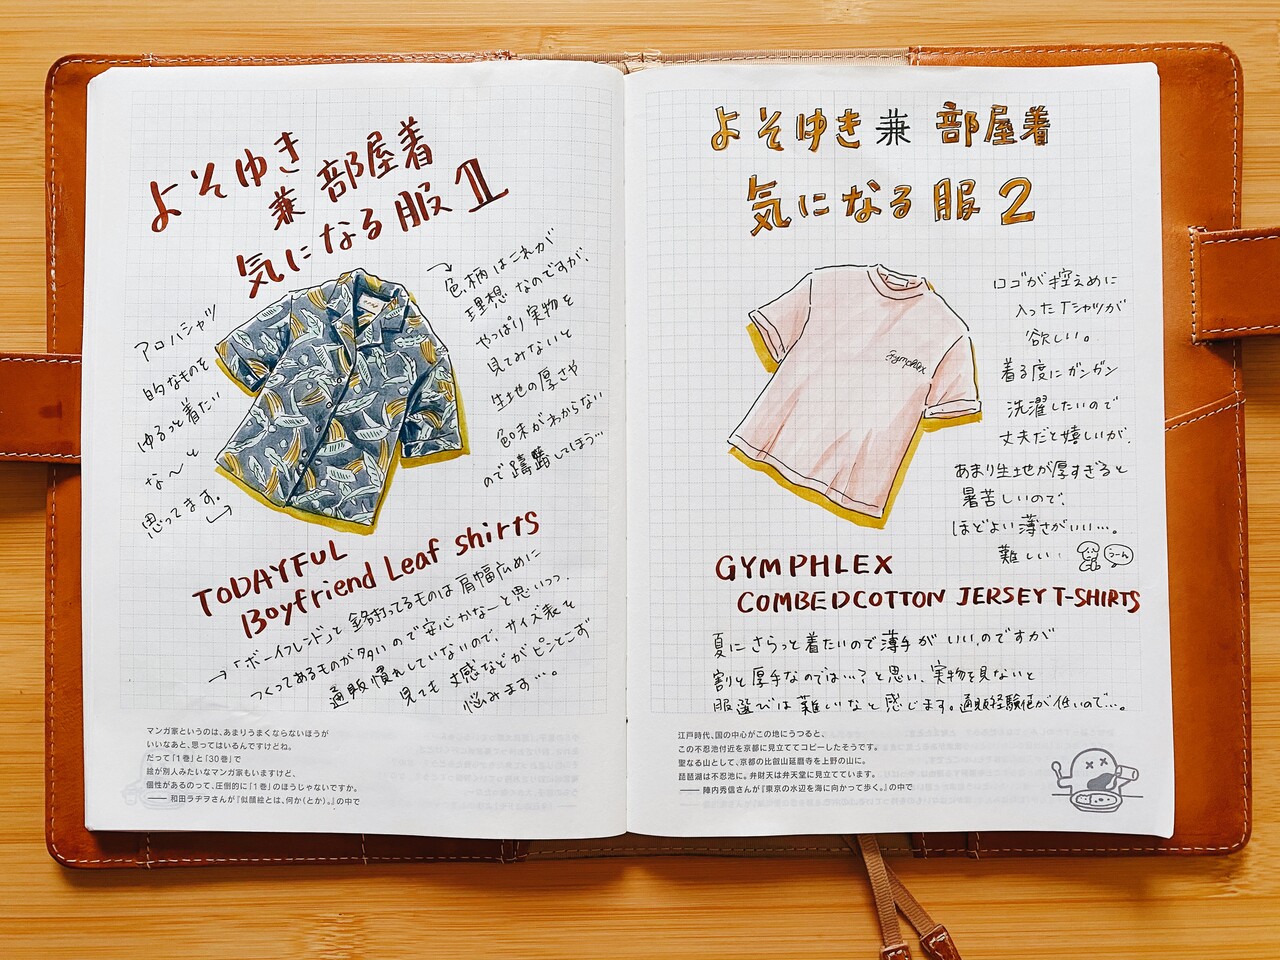 よそゆき
兼 部屋着
気になる服 1
アロハシャツ
的なものを
ゆるっと着たい
な〜と
思ってます。
色、柄はこれが
理想なのですが、
やっぱり実物を
見てみないと
生地の厚さや
色味がわからない
ので躊躇してしまう…
TODAYFUL
Boyfriend Leaf shirts
→「ボーイフレンド」と銘打ってるものは肩幅広めに
つくってあるものが多いので安心かなーと思いつつ、
通販慣れしていないので、サイズ表を
見ても丈感などがピンとこず
悩みます…。
マンガ家というのは、あまりうまくならないほうが
いいなあと、思ってはいるんですけどね。
だって「1巻」と「30巻」で
絵が別人みたいなマンガ家もいますけど、
個性があるのって、圧倒的に「1巻」のほうじゃないですか。
―― 和田ラヂヲさんが『似顔絵とは、何か(とか)。』の中で
よそゆき 兼 部屋着
気になる服 2
ロゴが控えめに
入ったTシャツが
欲しい。
着る度にガンガン
洗濯したいので
丈夫だと嬉しいが、
あまり生地が厚すぎると
暑苦しいので、
ほどよい薄さがいい…。
難しい
うーん
Gymphlex
GYMPHLEX
COMBEDCOTTON JERSEY T-SHIRTS
夏にさらっと着たいので薄手がいい、のですが
割と厚手なのでは…?と思い、実物を見ないと
服選びは難しいなと感じます。通販経験値が低いので…。
江戸時代、国の中心がこの地にうつると、
この不忍池付近を京都に見立ててコピーしたそうです。
聖なる山として、京都の比叡山延暦寺を上野の山に。
琵琶湖は不忍池に。弁財天は弁天堂に見立てています。
―― 陣内秀信さんが『東京の水辺を海に向かって歩く。』の中で